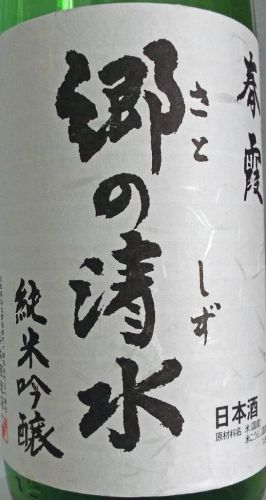 春霞
郷の清水
さと しず
純米吟醸
日本酒
原材料名 米(国産)
米こうじ(国産